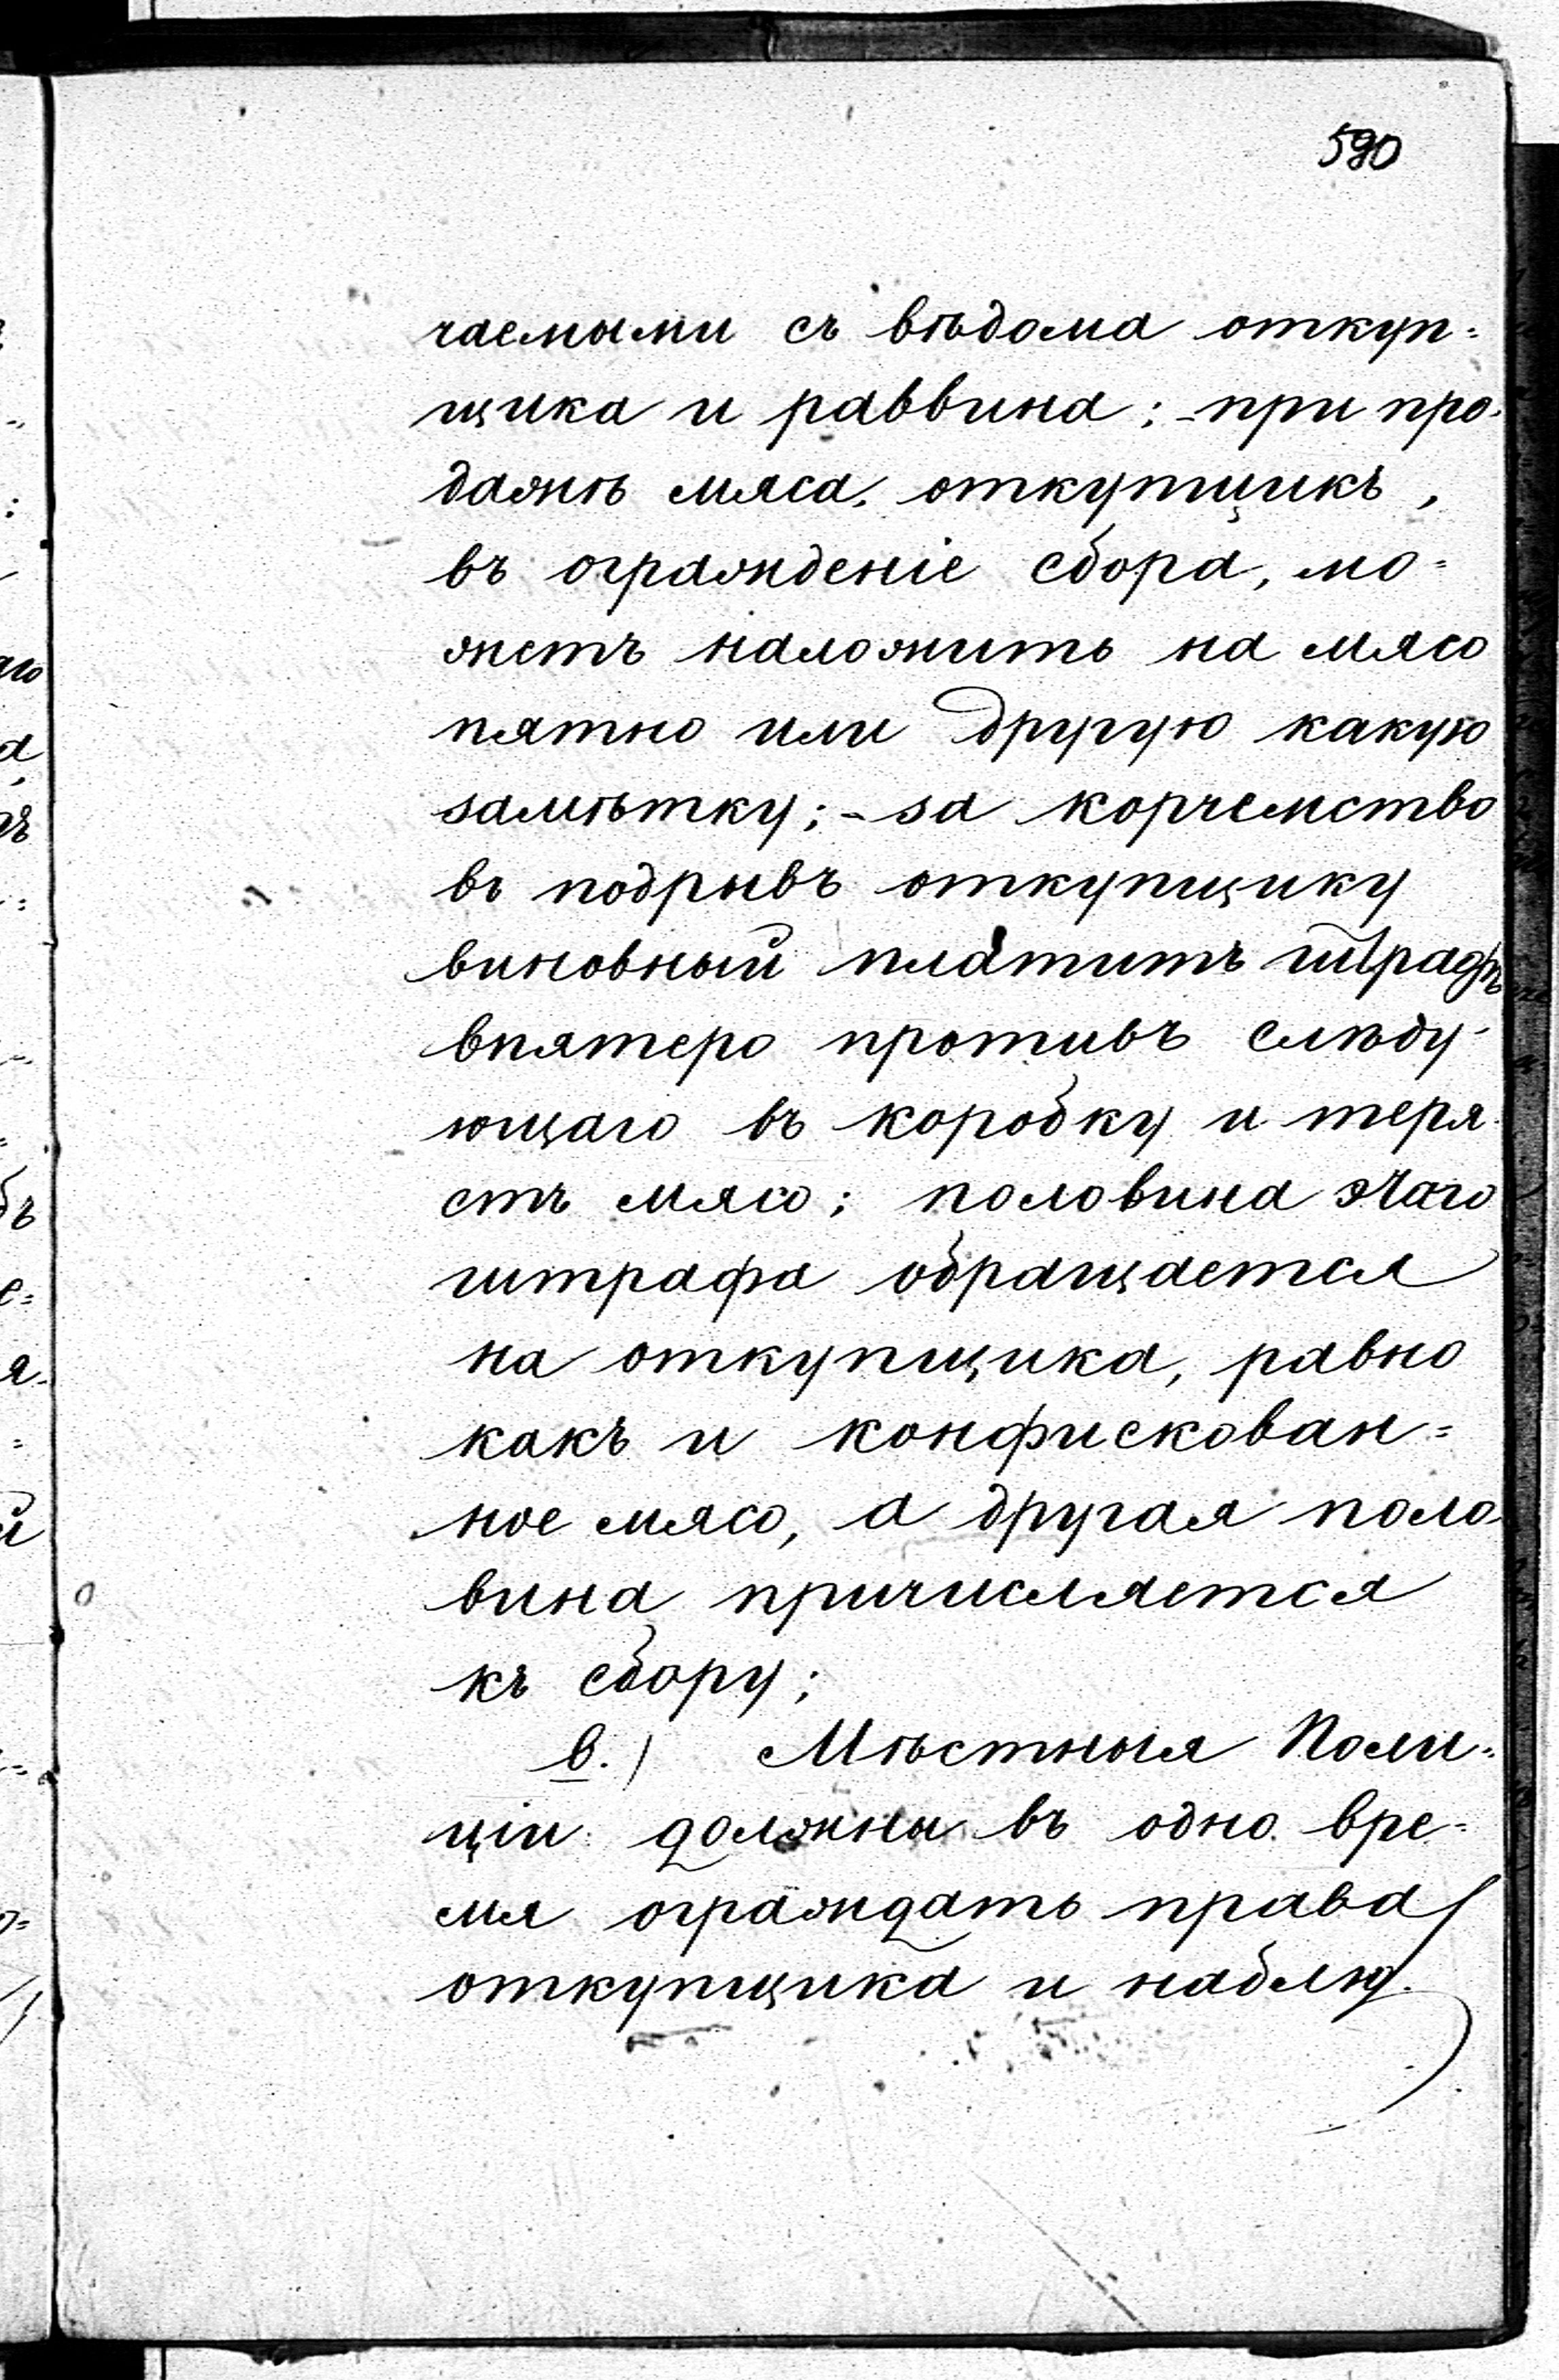 590
чаемыми съ вѣдома откуп=
щика и раввина; - при про-
дажѣ мяса, откупщикъ,
въ огражденіе сбора, мо=
жетъ наложить на мясо
пятно или другую какую
замѣтку; - за корчемство
въ подрывъ откупщику
виновный платитъ штрафъ
впятеро противъ слѣду-
ющаго въ коробку и теря-
етъ мясо; половина этаго
штрафа обращается
на откупщика, равно
какъ и конфискован=
ное мясо, а другая поло-
вина причисляется
къ сбору;
в.) Мѣстныя Поли=
ціи должны въ одно вре=
мя ограждать права
откупщика и наблю-